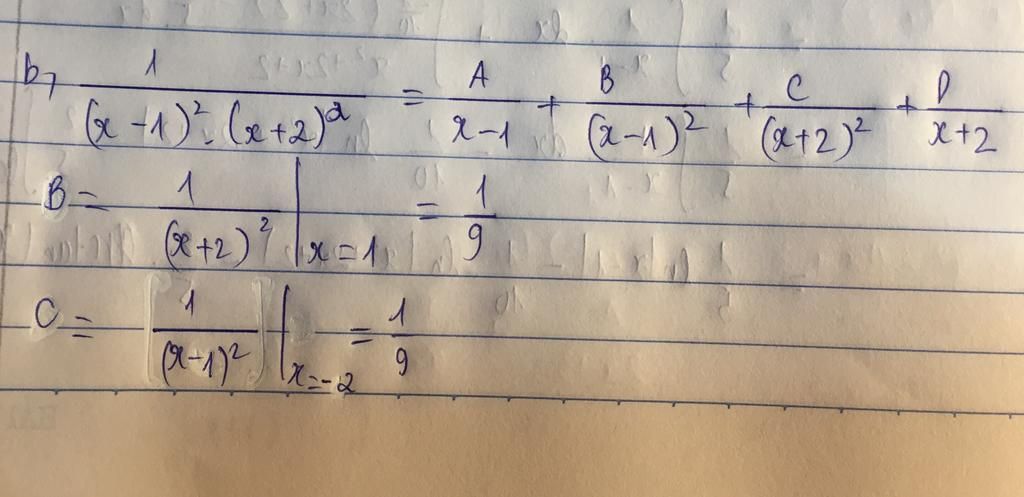 b, 1/((x-1)². (x+2)²) = A/(x-1) + B/(x-1)² + C/(x+2)² + D/(x+2)
B = 1/(x+2)² | x=1 = 1/9
C = [1/(x-1)²] | x=-2 = 1/9